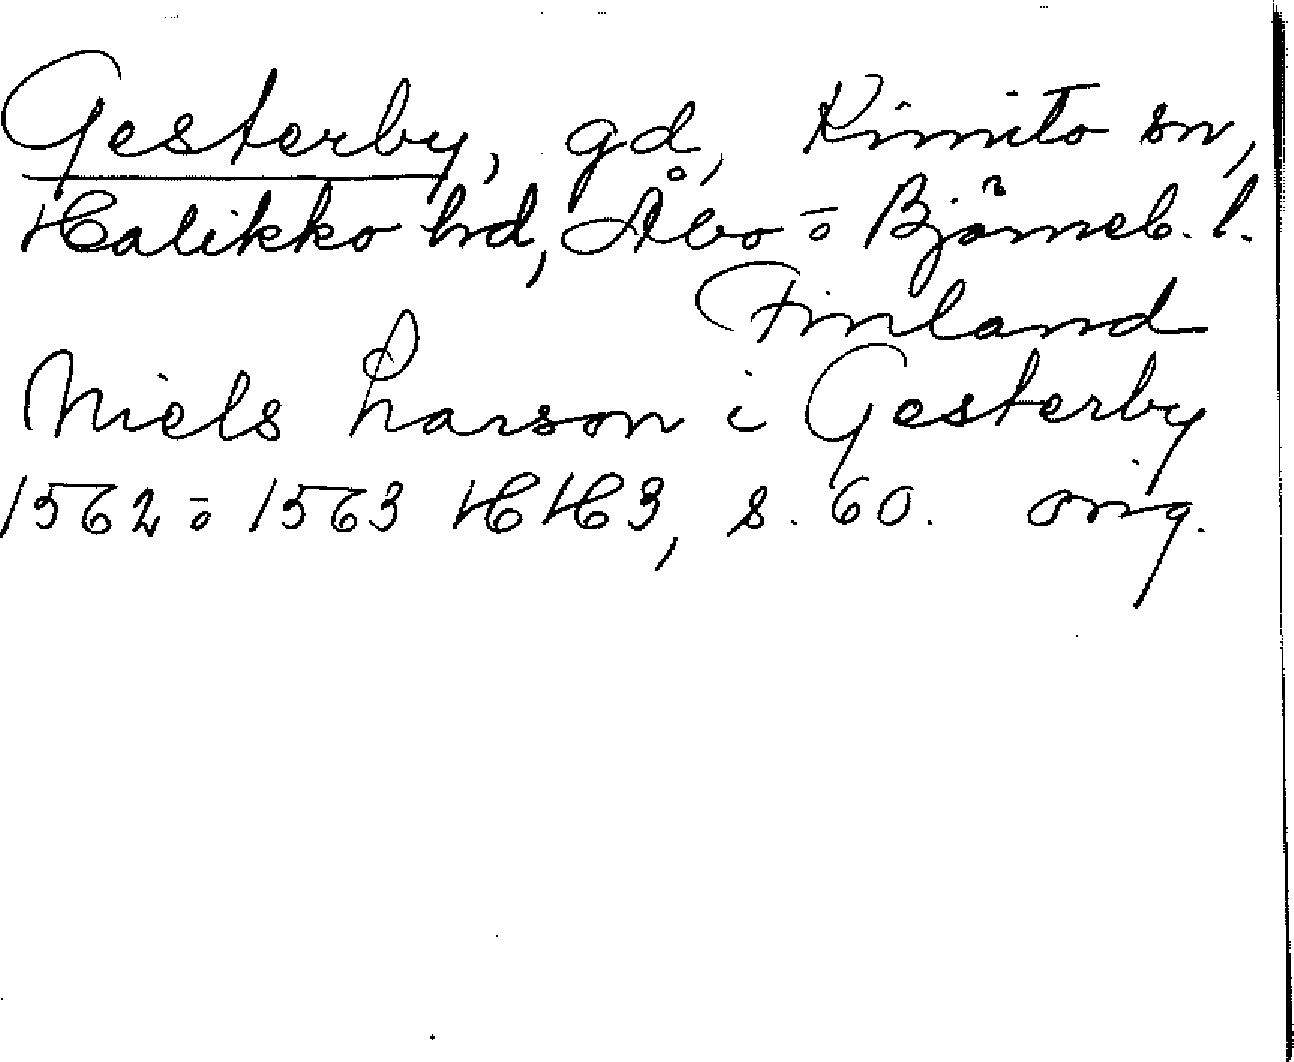 Gesterby, gd, Kimito sn,
Halikko hd, Åbo o Björneb. l.
Finland
Niels Larson i Gesterby
1562 o 1563 HH3, s. 60. orig.